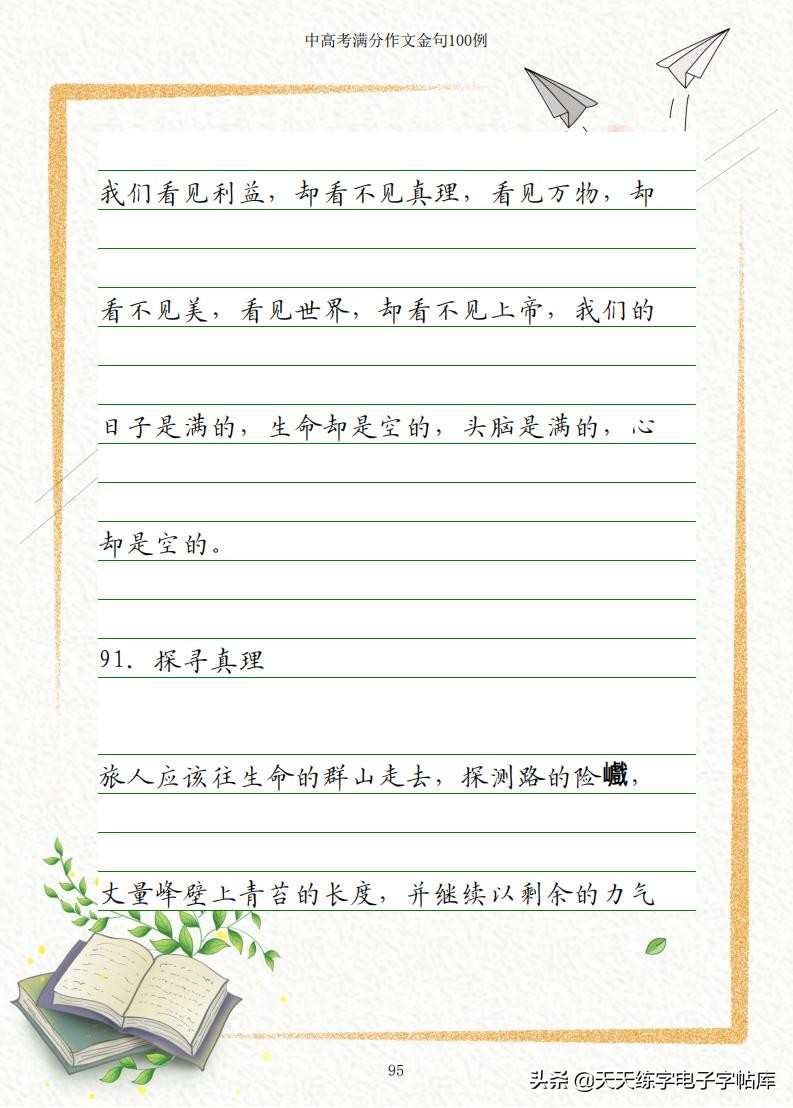 中高考满分作文金句100例
我们看见利益，却看不见真理，看见万物，却
看不见美，看见世界，却看不见上帝，我们的
日子是满的，生命却是空的，头脑是满的，心
却是空的。
91. 探寻真理
旅人应该往生命的群山走去，探测路的险巇，
丈量峰壁上青苔的长度，并继续以剩余的力气
95
头条 @天天练字电子字帖库